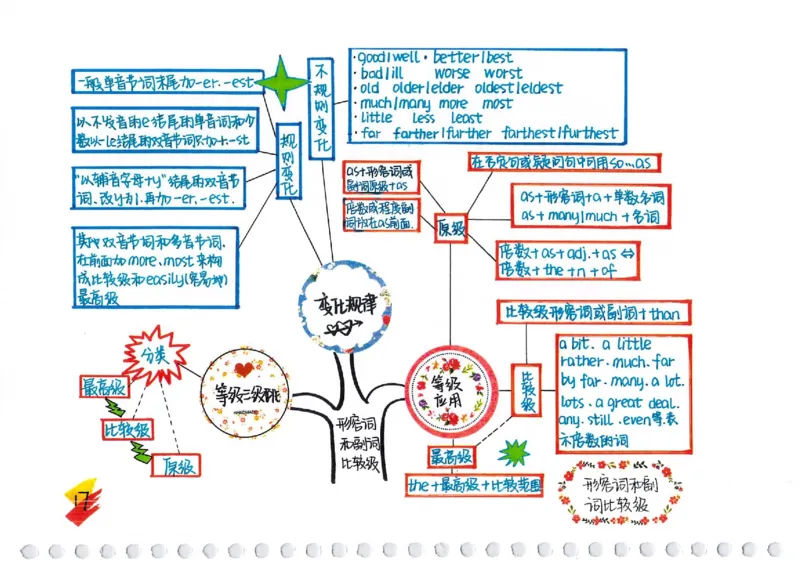 一般单音节词末尾加-er.-est
以不发音的e结尾的单音词和少
数以-le结尾的双音节词只加-r.-st
"以辅音字母+y"结尾的双音节
词.改y为i.再加-er.-est.
其他双音节词和多音节词.
在前面加more.most来构
成比较级和easily(容易地)
最高级
规则变化
不规则变化
·good/well·better/best
·bad/ill worse worst
·old older/elder oldest/eldest
·much/many more most
·little less least
·far farther/further farthest/furthest
as+形容词或
副词原级+as
倍数或程度副
词放在as前面.
原级
在否定句或疑问句中可用so...as
as+形容词+a+单数名词
as+many/much+名词
倍数+as+adj.+as⇔
倍数+the+n+of
变化规律
比较级形容词或副词+than
比较级
a bit. a little
rather. much. far
by far. many. a lot.
lots. a great deal.
any. still. even等.表
示倍数的词
等级
应用
最高级
the+最高级+比较范围
分类
最高级
比较级
原级
形容词
和副词
比较级
形容词和副
词比较级
17